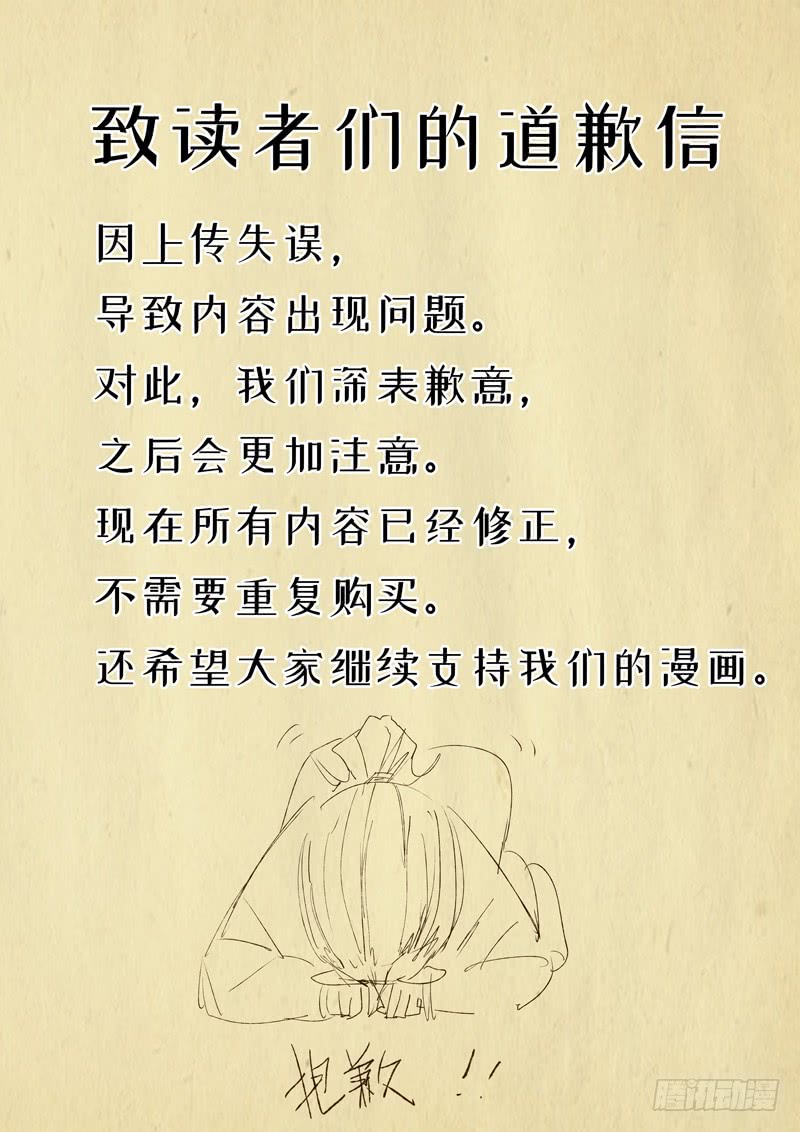 致读者们的道歉信
因上传失误，
导致内容出现问题。
对此，我们深表歉意，
之后会更加注意。
现在所有内容已经修正，
不需要重复购买。
还希望大家继续支持我们的漫画。
抱歉！！
腾讯动漫